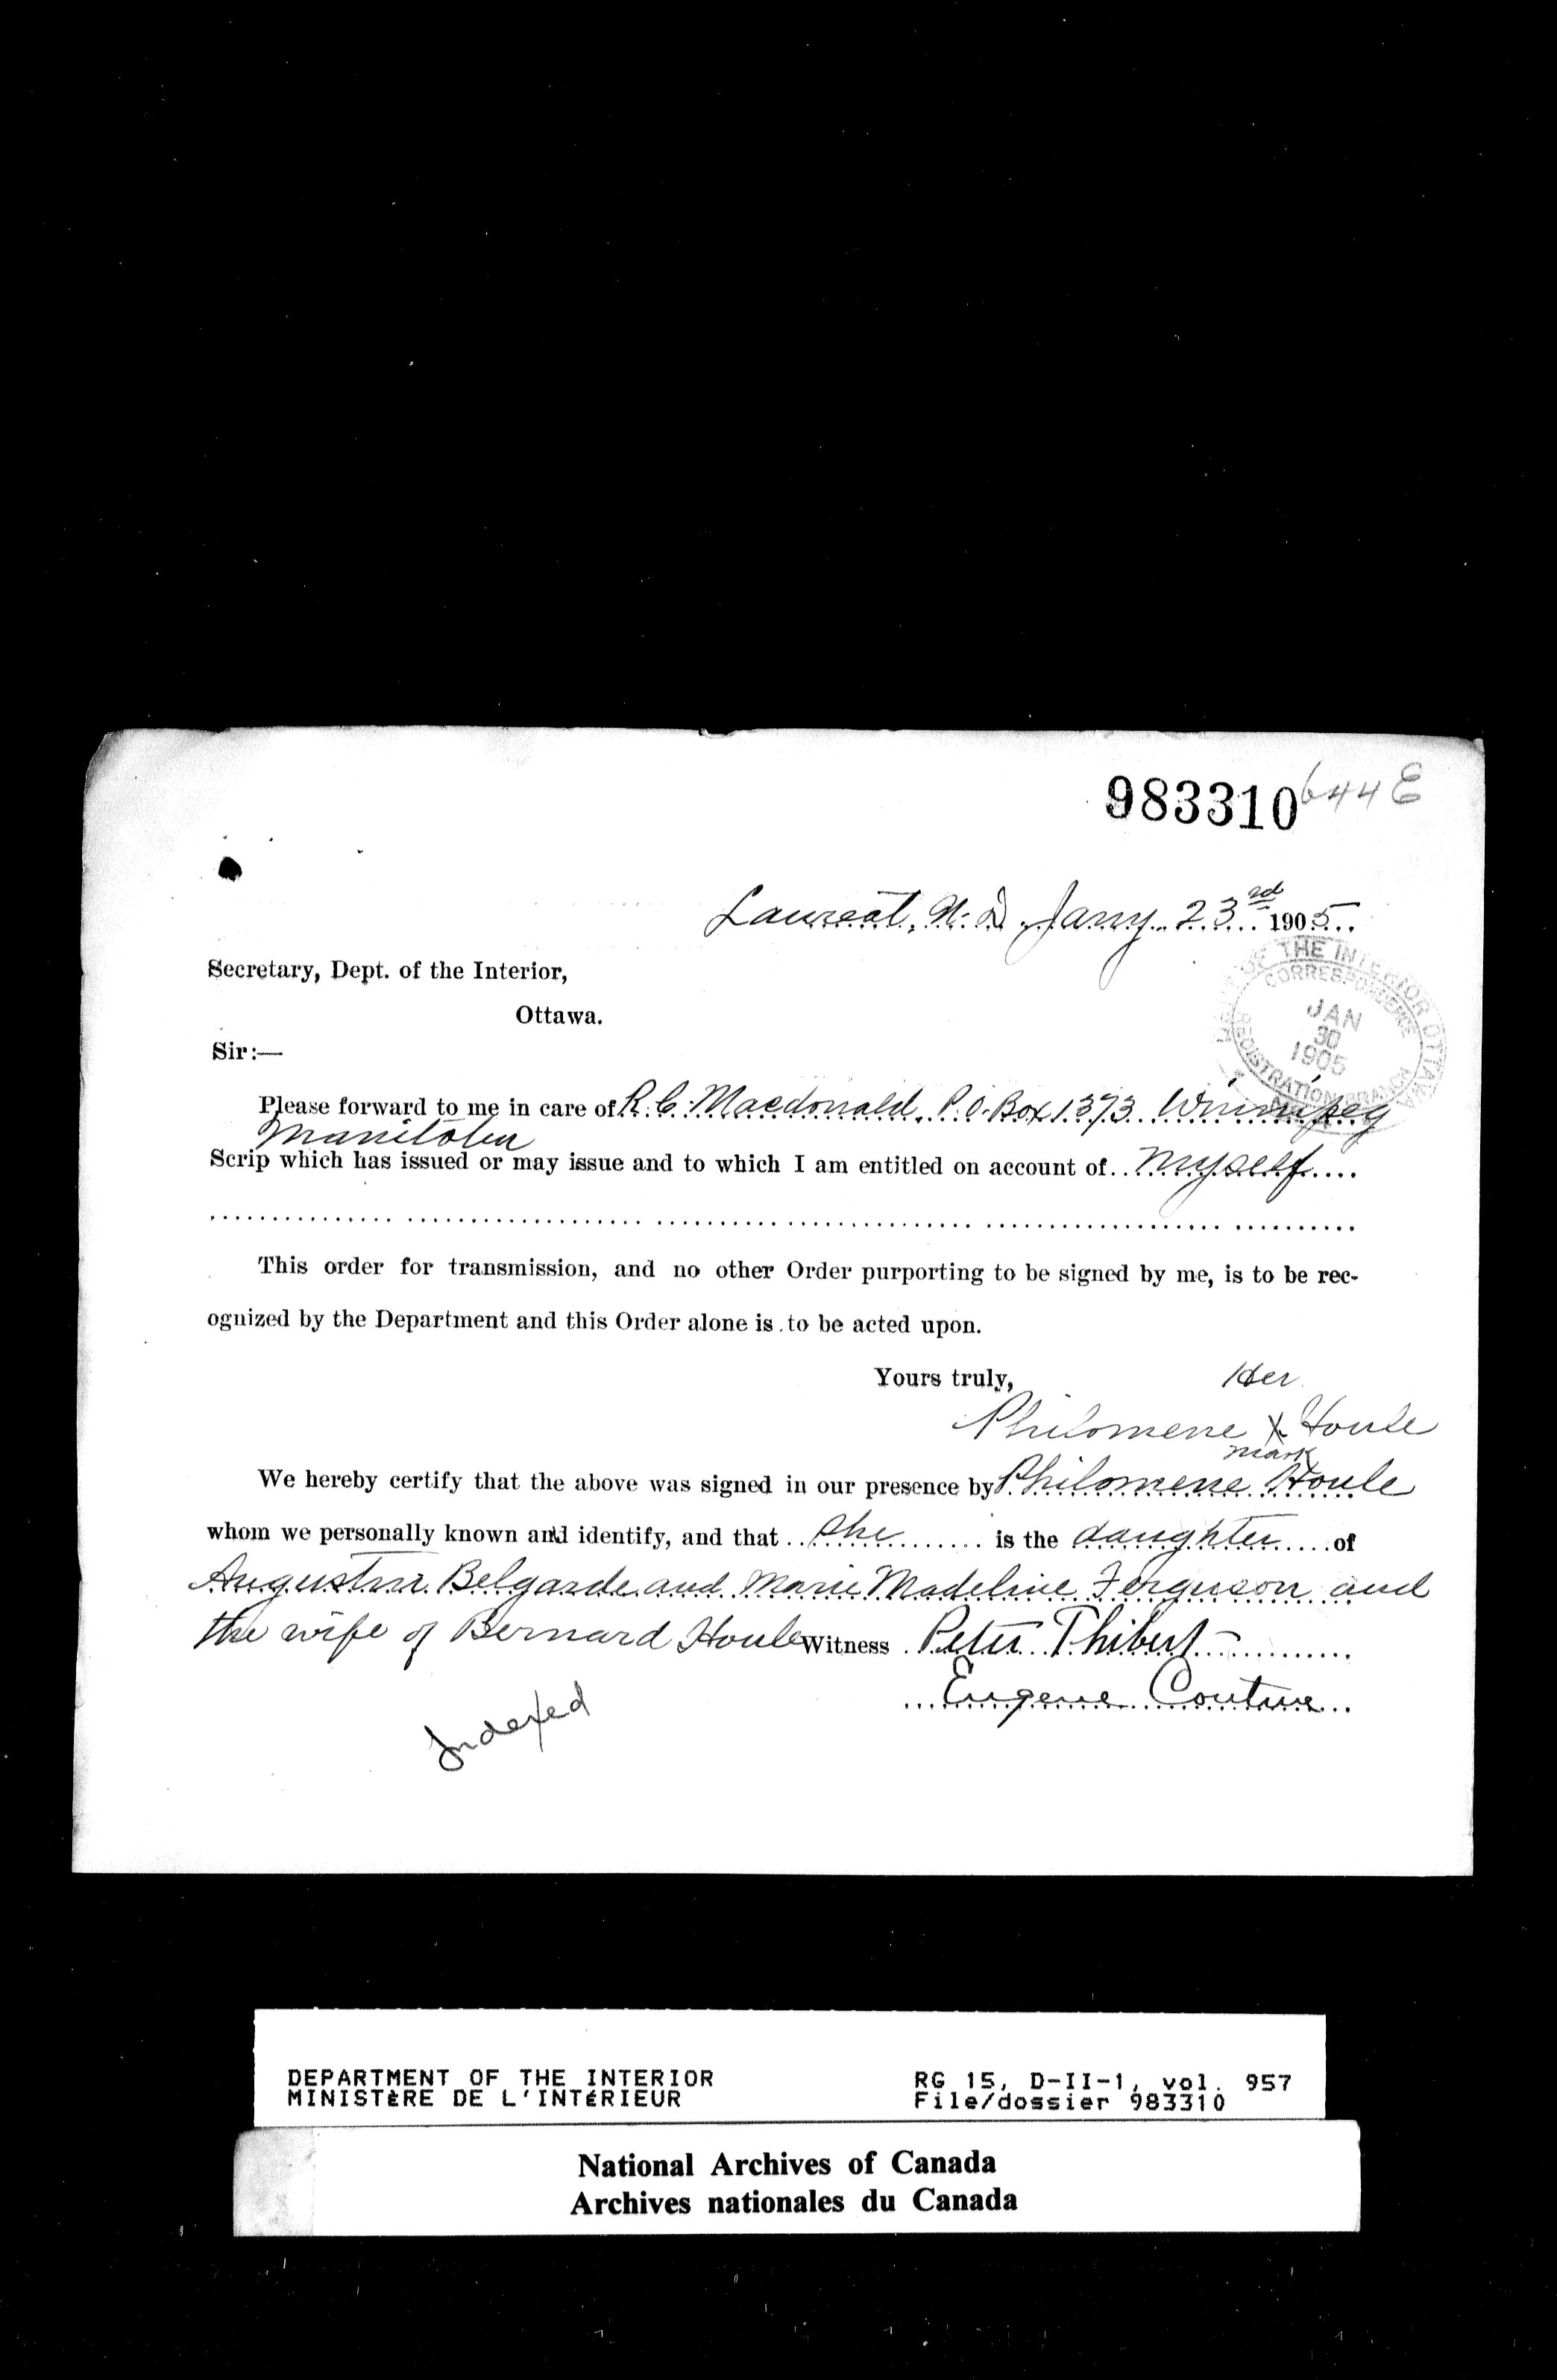 983310 644 E
Laureat, N. D. Jany. 23rd 1905
Secretary, Dept. of the Interior,
Ottawa.
Sir:—
DEPT. OF THE INTERIOR OTTAWA
CORRESPONDENCE
JAN
30
1905
REGISTRATION BRANCH
Please forward to me in care of R. C. Macdonald, P. O. Box 1373 Winnipeg
Manitoba
Scrip which has issued or may issue and to which I am entitled on account of.. myself....
This order for transmission, and no other Order purporting to be signed by me, is to be rec-
ognized by the Department and this Order alone is to be acted upon.
Yours truly, Her
Philomene X Houle
mark
We hereby certify that the above was signed in our presence by Philomene Houle
whom we personally known and identify, and that she is the daughter of
Augustin Belgarde and Marie Madeline Ferguson and
the wife of Bernard Houle Witness Peter Thibert
Eugene Couture
Indexed
DEPARTMENT OF THE INTERIOR RG 15, D-II-1, vol. 957
MINISTÈRE DE L'INTÉRIEUR File/dossier 983310
National Archives of Canada
Archives nationales du Canada